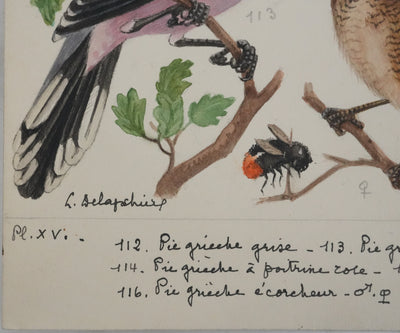 113
♀
L. Delapchier
Pl. XV. 112. Pie grièche grise - 113. Pie gr
114. Pie grièche à poitrine rose -
116. Pie grièche écorcheur - ♂. ♀